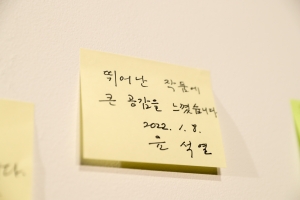 뛰어난 작품에
큰 공감을 느꼈습니다
2022. 1. 8.
윤 석 열
다.